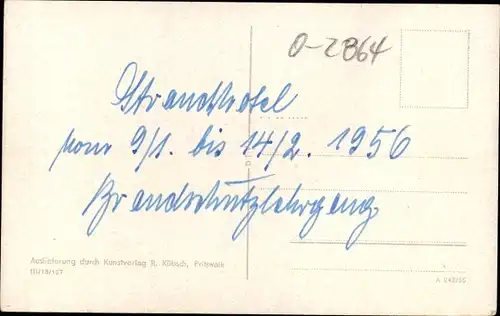 O-2864
Strandhotel
vom 9/1. bis 14/2. 1956
Brandschutzlehrgang
Auslieferung durch Kunstverlag R. Kübsch, Pritzwalk
III/18/107
A 243/55